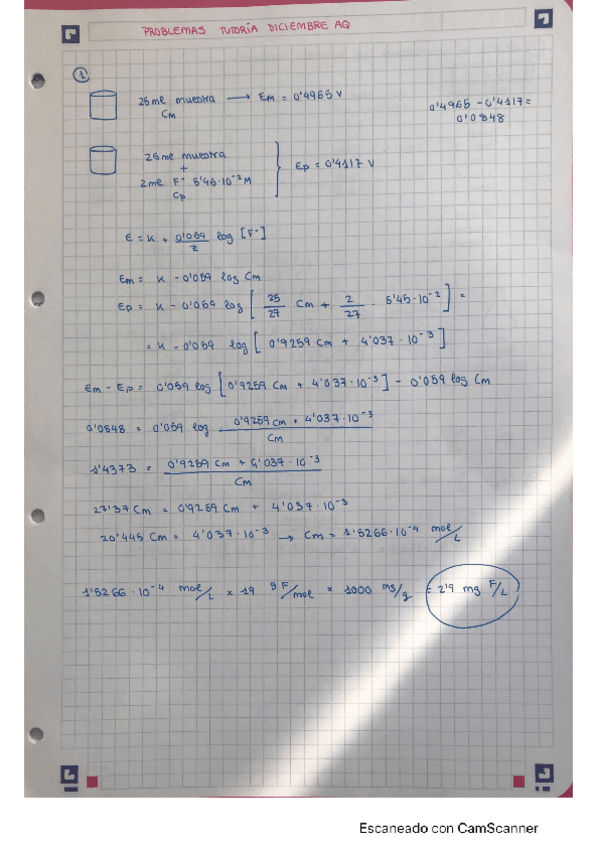 PROBLEMAS TUTORÍA DICIEMBRE AQ
1
25 ml muestra → Em = 0'4965 V
Cm
0'4965 - 0'4117 =
0'0848
25 ml muestra
+
2 ml F⁻ 5'45·10⁻² M
Cp
Ep = 0'4117 V
E = K + 0'059/z log [F⁻]
Em = K - 0'059 log Cm
Ep = K - 0'059 log [ 25/27 Cm + 2/27 · 5'45·10⁻² ] =
= K - 0'059 log [ 0'9259 Cm + 4'037·10⁻³ ]
Em - Ep = 0'059 log [ 0'9259 Cm + 4'037·10⁻³ ] - 0'059 log Cm
0'0848 = 0'059 log (0'9259 Cm + 4'037·10⁻³) / Cm
1'4373 = (0'9259 Cm + 4'037·10⁻³) / Cm
27'37 Cm = 0'9259 Cm + 4'037·10⁻³
20'445 Cm = 4'037·10⁻³ → Cm = 1'5266·10⁻⁴ mol/L
1'5266·10⁻⁴ mol/L × 19 g F/mol × 1000 mg/g = 2'9 mg F/L
Escaneado con CamScanner